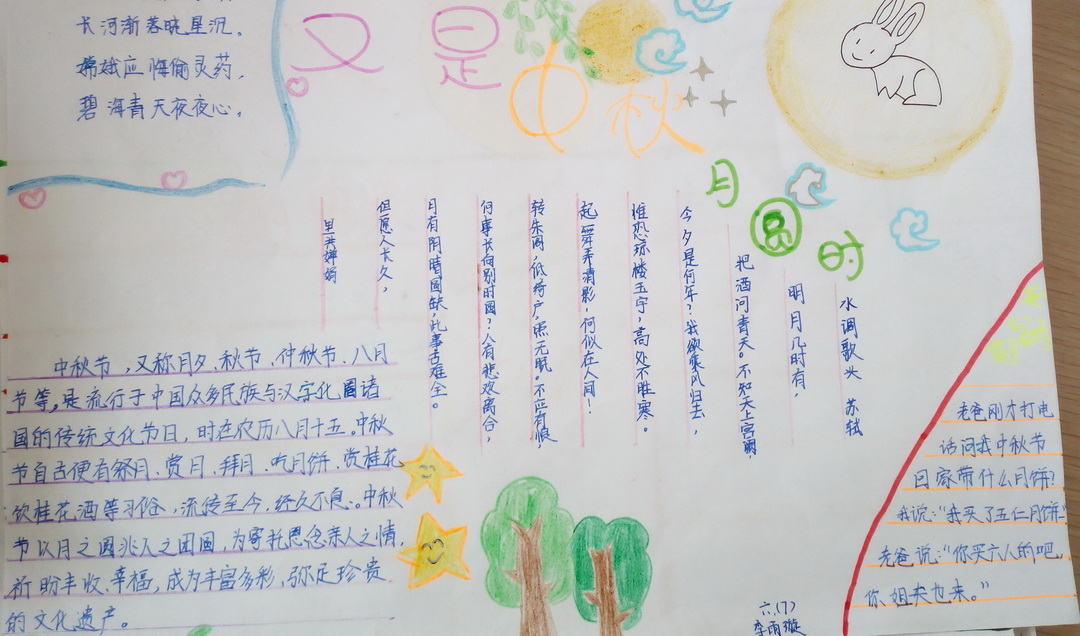 长河渐落晓星沉。
嫦娥应悔偷灵药，
碧海青天夜夜心。
又是中秋
月圆时
水调歌头 苏轼
明月几时有，
把酒问青天。不知天上宫阙，
今夕是何年？我欲乘风归去，
惟恐琼楼玉宇，高处不胜寒。
起舞弄清影，何似在人间！
转朱阁，低绮户，照无眠，不应有恨，
何事长向别时圆？人有悲欢离合，
月有阴晴圆缺，此事古难全。
但愿人长久，
里共婵娟
中秋节，又称月夕、秋节、仲秋节、八月
节等，是流行于中国众多民族与汉字化圈诸
国的传统文化节日，时在农历八月十五。中秋
节自古便有祭月、赏月、拜月、吃月饼、赏桂花
饮桂花酒等习俗，流传至今，经久不息。中秋
节以月之圆兆人之团圆，为寄托思念亲人之情，
祈盼丰收、幸福，成为丰富多彩，弥足珍贵
的文化遗产。
老爸刚才打电
话问我中秋节
回家带什么月饼？
我说：“我买了五仁月饼！
老爸说：“你买六人的吧，
你姐夫也来。”
六.(7)
李雨璇